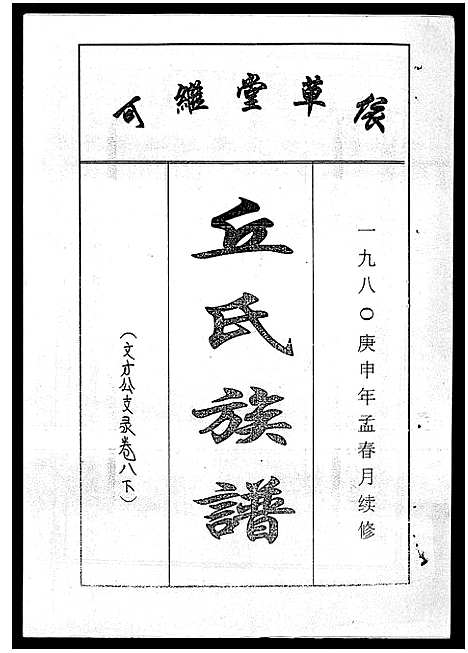 草堂維可
一九八〇庚申年孟春月续修
丘氏族譜
（文才公支录卷八下）